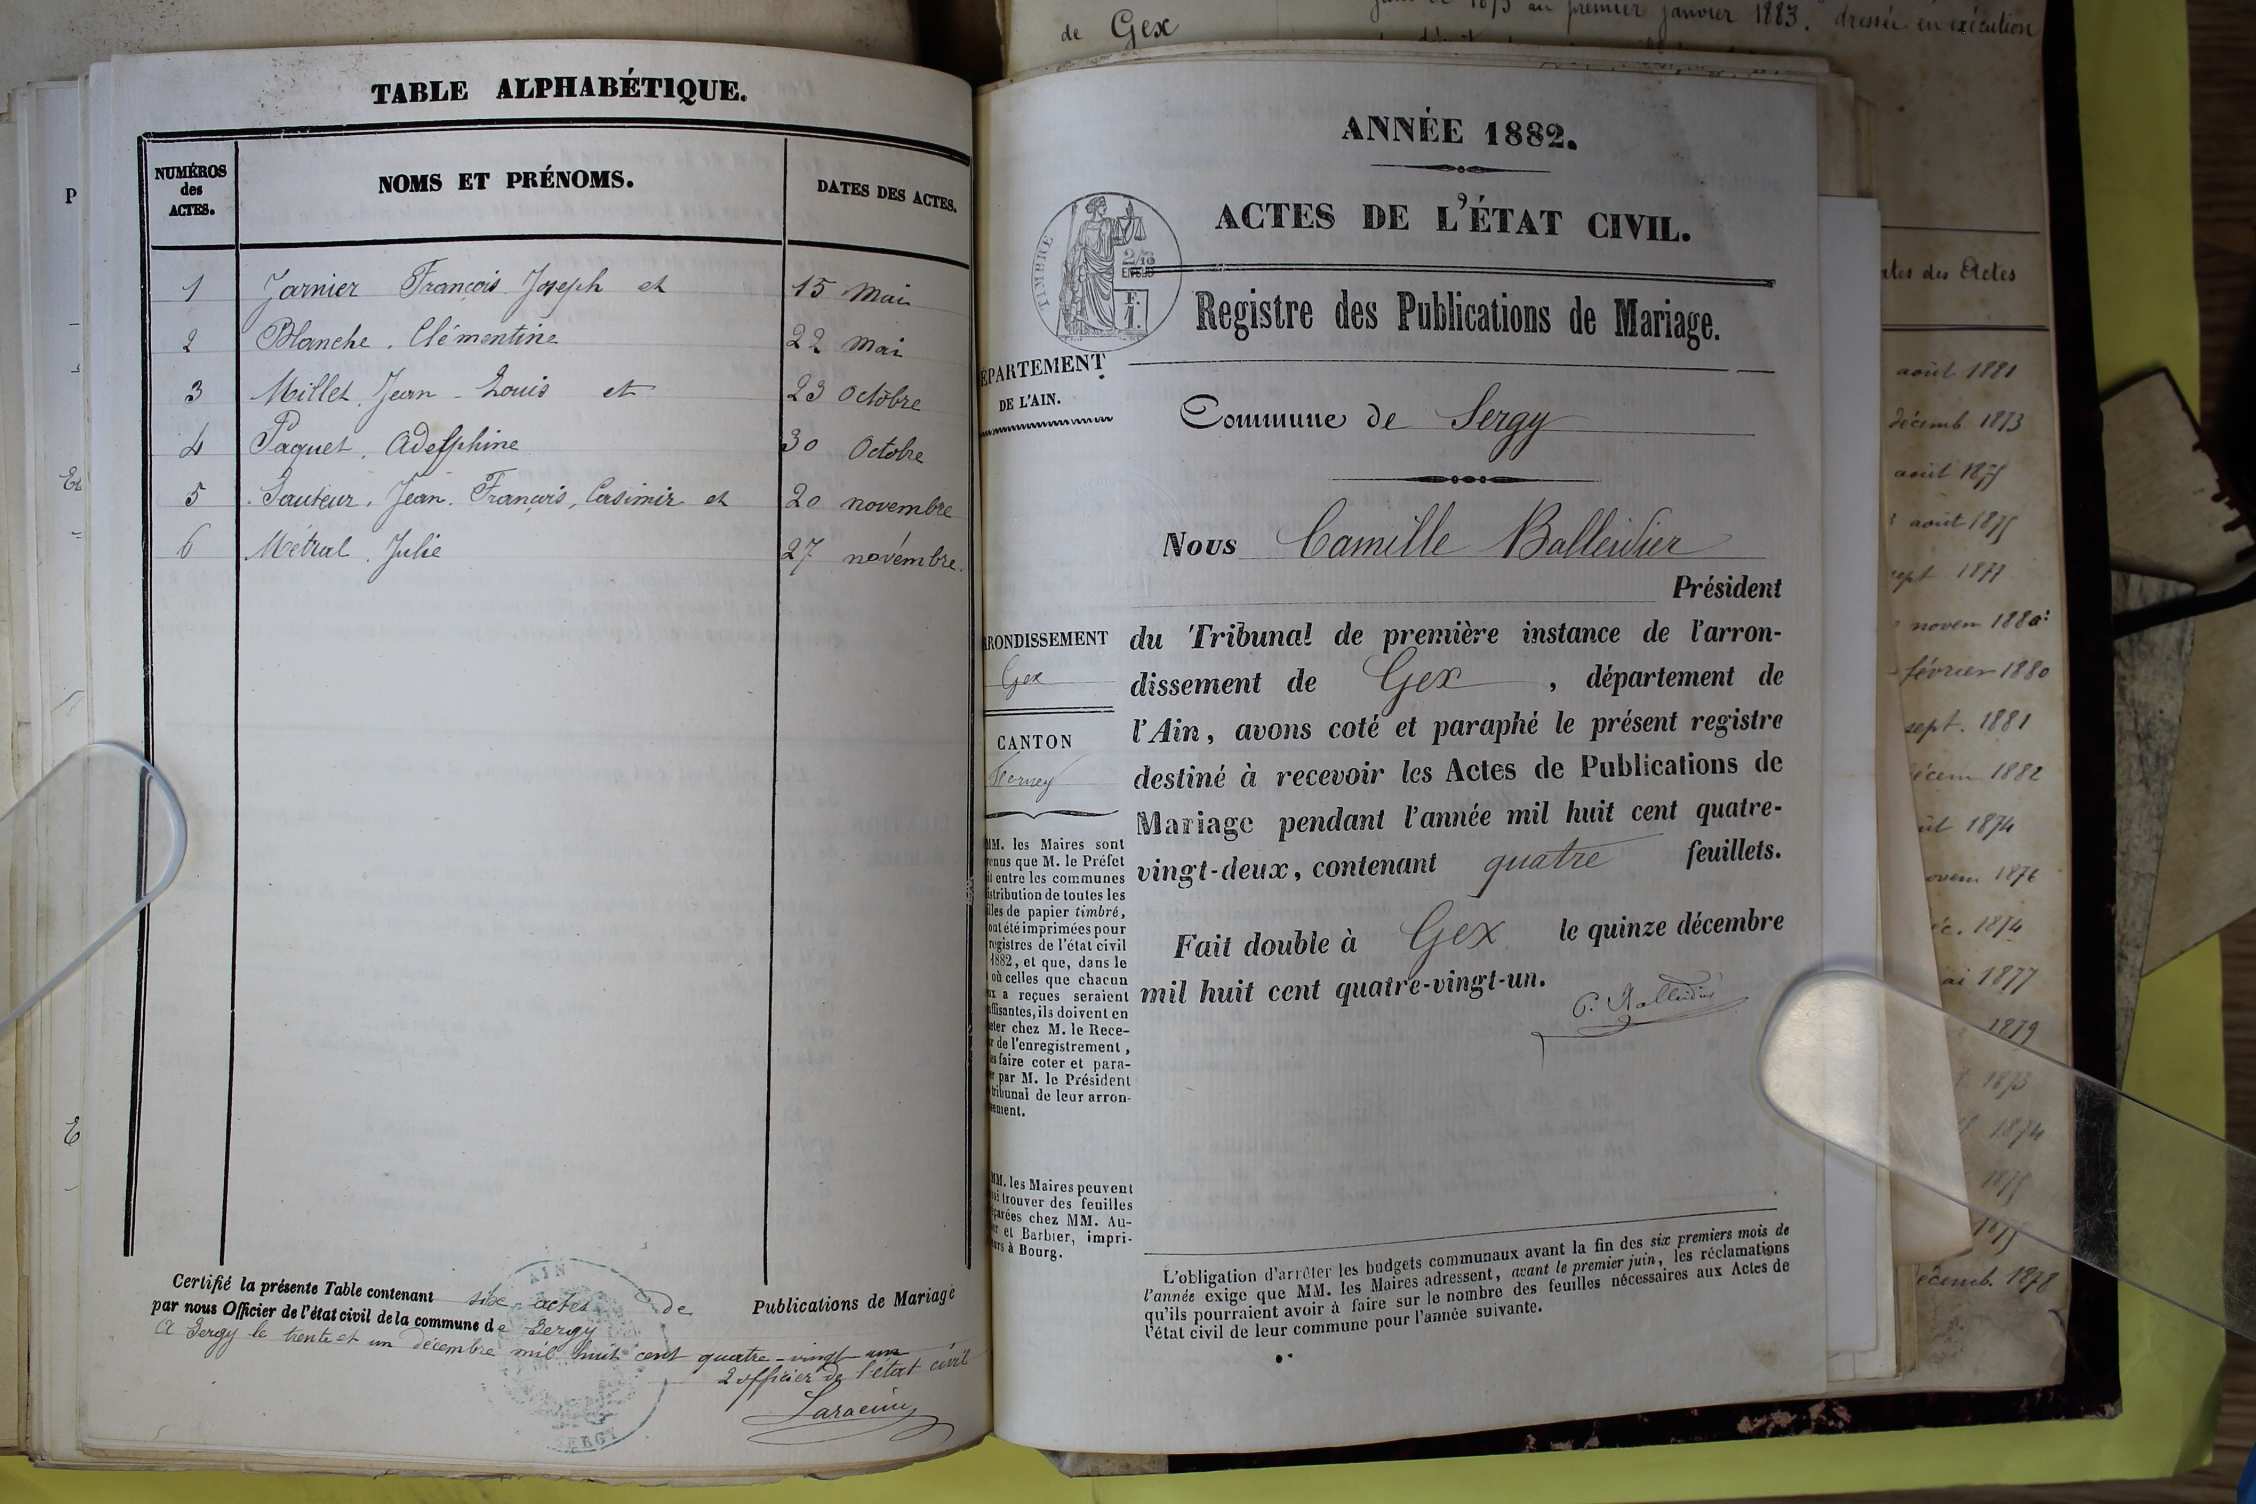 TABLE ALPHABÉTIQUE.
NUMÉROS
des
ACTES.
NOMS ET PRÉNOMS.
DATES DES ACTES.
1 Jarnier François Joseph et 15 Mai
2 Blanche, Clémentine 22 Mai
3 Millet, Jean-Louis et 23 Octobre
4 Paquet, Adelphine 30 Octobre
5 Sauteur, Jean, François, Casimir et 20 novembre
6 Métral, Julie 27 novembre.
Certifié la présente Table contenant six actes de Publications de Mariage
par nous Officier de l'état civil de la commune de Sergy
A Sergy le trente et un décembre mil huit cent quatre-vingt un
L'officier de l'état civil
AIN
SERGY
de Gex
au premier janvier 1883. dressée en exécution
ANNÉE 1882.
ACTES DE L'ÉTAT CIVIL.
TIMBRE
2/10
EN SUS
F.
1.
Registre des Publications de Mariage.
ÉPARTEMENT
DE L'AIN.
Commune de Sergy
Nous Camille Balleidier
Président
RONDISSEMENT
Gex
CANTON
Ferney
du Tribunal de première instance de l'arron-
dissement de Gex, département de
l'Ain, avons coté et paraphé le présent registre
destiné à recevoir les Actes de Publications de
Mariage pendant l'année mil huit cent quatre-
vingt-deux, contenant quatre feuillets.
Fait double à Gex le quinze décembre
mil huit cent quatre-vingt-un.
C. Balleidier
MM. les Maires sont
enus que M. le Préfet
it entre les communes
istribution de toutes les
lles de papier timbré,
ont été imprimées pour
registres de l'état civil
1882, et que, dans le
où celles que chacun
ux a reçues seraient
uffisantes, ils doivent en
eter chez M. le Rece-
r de l'enregistrement,
es faire coter et para-
er par M. le Président
tribunal de leur arron-
sement.
MM. les Maires peuvent
si trouver des feuilles
parées chez MM. Au-
er et Barbier, impri-
urs à Bourg.
L'obligation d'arrêter les budgets communaux avant la fin des six premiers mois de
l'année exige que MM. les Maires adressent, avant le premier juin, les réclamations
qu'ils pourraient avoir à faire sur le nombre des feuilles nécessaires aux Actes de
l'état civil de leur commune pour l'année suivante.
ates des Actes
août 1881
décemb 1873
août 1875
août 1875
sept 1877
novem 1880
février 1880
sept. 1881
écem 1882
ût 1874
ovem 1876
éc. 1874
ai 1877
1879
1873
1874
1875
1875
écemb. 1878